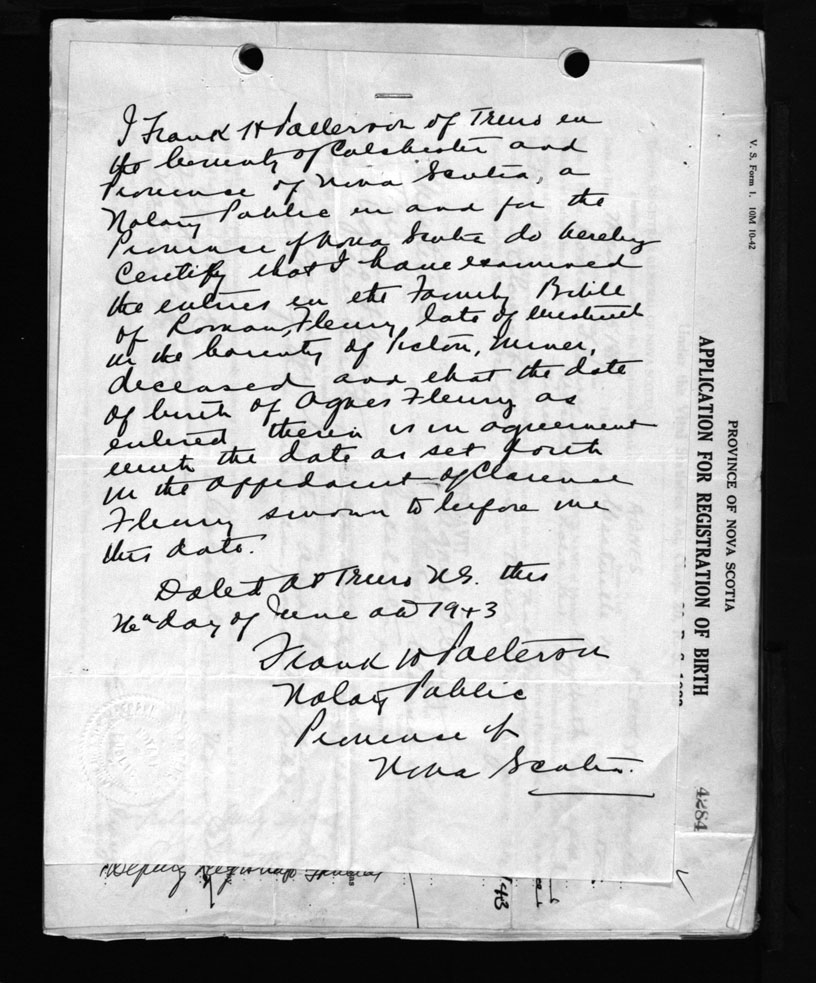 I Frank H Patterson of Truro in
the County of Colchester and
Province of Nova Scotia, a
Notary Public in and for the
Province of Nova Scotia do hereby
Certify that I have examined
the entries in the Family Bible
of Roman Fleury, late of Westville
in the County of Pictou, Miner,
deceased and that the date
of birth of Agnes Fleury as
entered therein is in agreement
with the date as set forth
in the affidavit of Clarence
Fleury sworn to before me
this date.
Dated at Truro N.S. this
day of June AD 1943
Frank H Patterson
Notary Public
Province of
Nova Scotia.
Deputy Registrar
V. S. Form 1. 10M 10-42
PROVINCE OF NOVA SCOTIA
APPLICATION FOR REGISTRATION OF BIRTH
4284